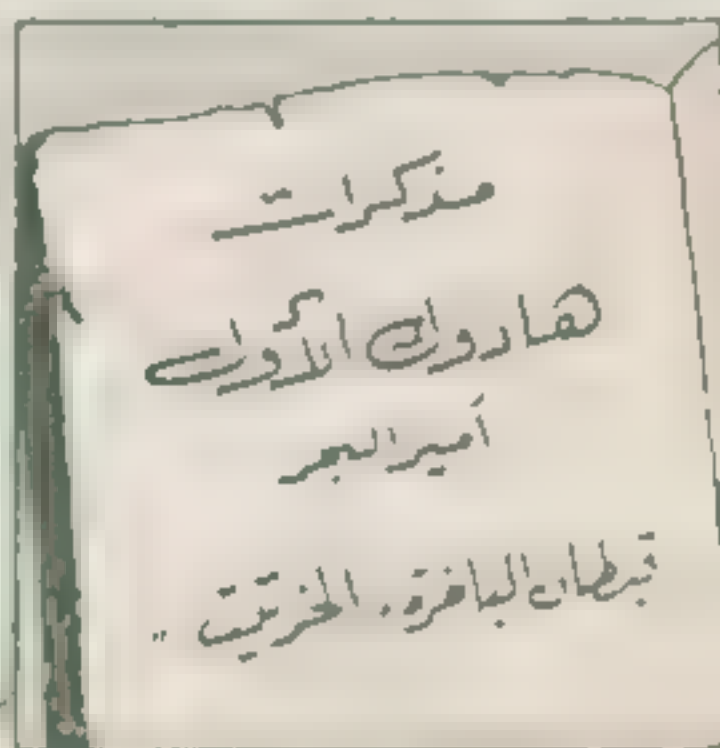 مذكرات
هادوك الأول
أمير البحر
قبطان الباخرة. الخرتيت "